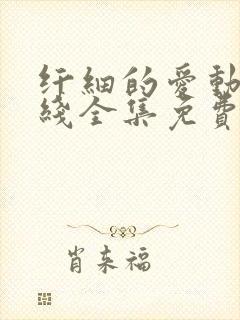 纤細的愛動
綫全集免費
肖来福